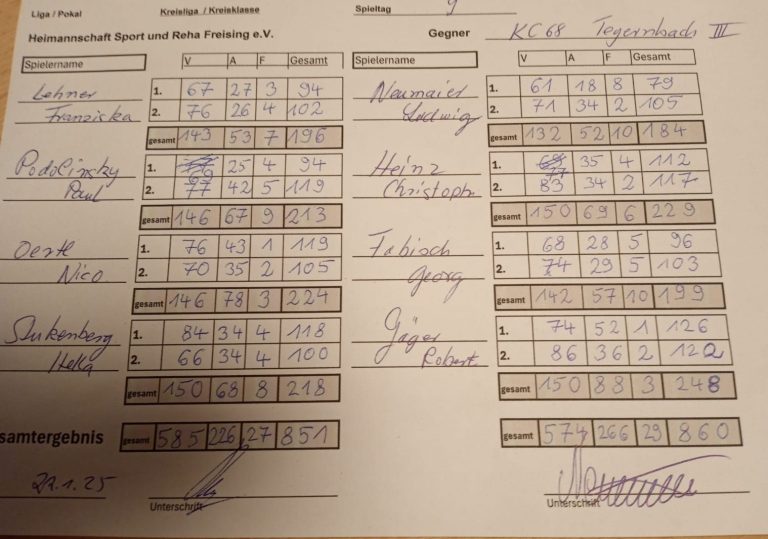 Liga / Pokal Kreisliga / Kreisklasse Spieltag 9
Heimannschaft Sport und Reha Freising e.V. Gegner KC68 Tegernbach III
Spielername V A F Gesamt Spielername V A F Gesamt
Lehner 1. 67 27 3 94 Neumaier 1. 61 18 8 79
Franziska 2. 76 26 4 102 Ludwig 2. 71 34 2 105
gesamt 143 53 7 196 gesamt 132 52 10 184
Podolinsky 1. 69 25 4 94 Heinz 1. 77 35 4 112
Paul 2. 77 42 5 119 Christoph 2. 83 34 2 117
gesamt 146 67 9 213 gesamt 150 69 6 229
Oertl 1. 76 43 1 119 Fabisch 1. 68 28 5 96
Nico 2. 70 35 2 105 Georg 2. 74 29 5 103
gesamt 146 78 3 224 gesamt 142 57 10 199
Stukenberg 1. 84 34 4 118 1. 74 52 1 126
2. 66 34 4 100 Robert 2. 86 36 2 122
gesamt 150 68 8 218 gesamt 150 88 3 248
samtergebnis gesamt 585 226 27 851 gesamt 574 266 29 860
22.1.25
Unterschrift Unterschrift